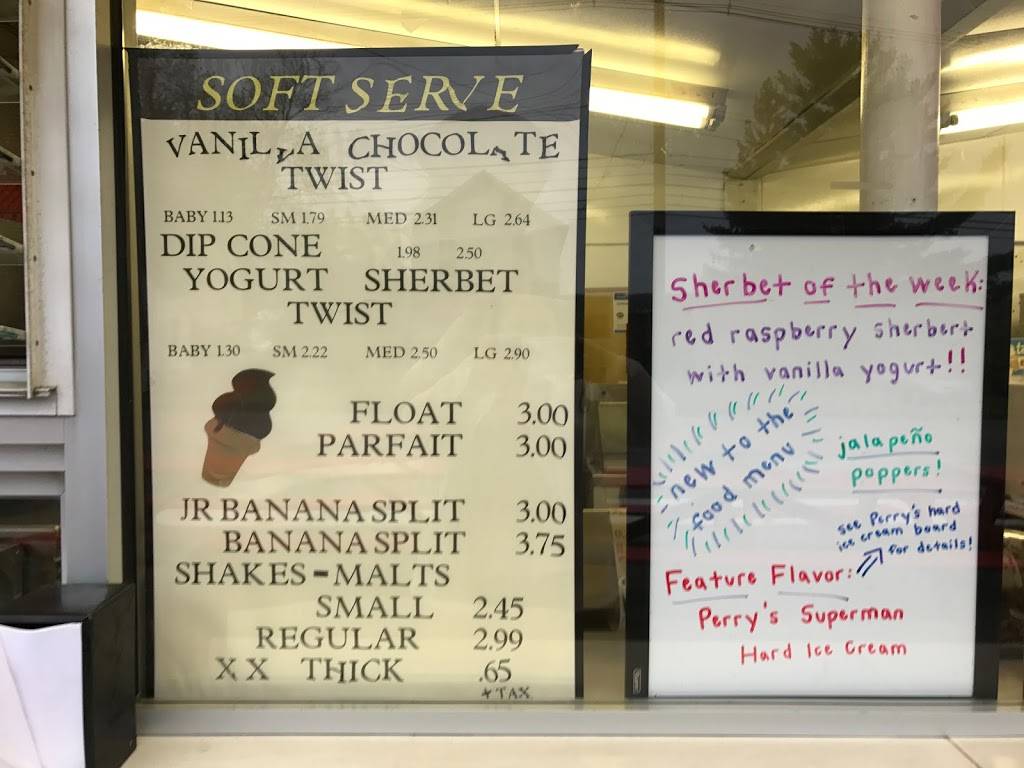 SOFT SERVE
VANILLA CHOCOLATE
TWIST
BABY 1.13 SM 1.79 MED 2.31 LG 2.64
DIP CONE 1.98 2.50
YOGURT SHERBET
TWIST
BABY 1.30 SM 2.22 MED 2.50 LG 2.90
FLOAT 3.00
PARFAIT 3.00
JR BANANA SPLIT 3.00
BANANA SPLIT 3.75
SHAKES-MALTS
SMALL 2.45
REGULAR 2.99
XX THICK .65
+ TAX
Sherbet of the week:
red raspberry sherbert
with vanilla yogurt!!
new to the
food menu
jalapeño
poppers!
see Perry's hard
ice cream board
for details!
Feature Flavor:
Perry's Superman
Hard Ice Cream